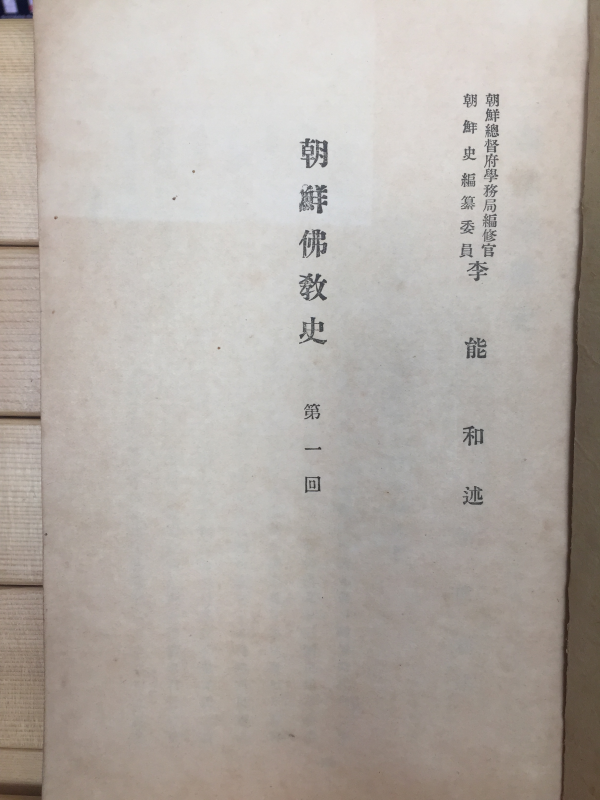 朝鮮總督府學務局編修官
朝鮮史編纂委員
李能和述
朝鮮佛教史 第一回